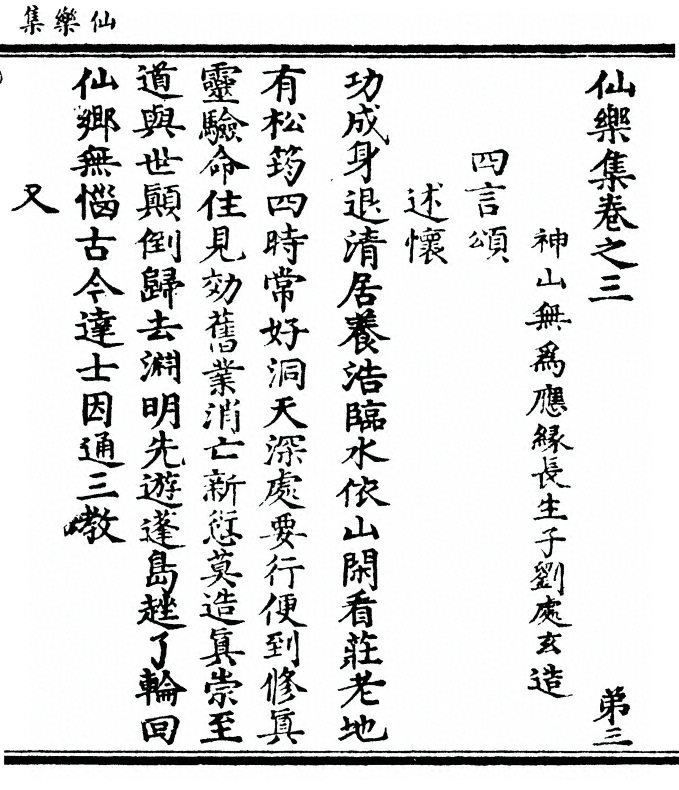 仙樂集
仙樂集卷之三
弟三
神山無爲應緣長生子劉處玄造
四言頌
述懷
功成身退清居養浩臨水依山閑看莊老地
有松筠四時常好洞天深處要行便到修眞
靈驗命住見効舊業消亡新愆莫造眞崇至
道與世顚倒歸去淵明先遊蓬島趓了輪回
仙鄉無惱古今達士因通三教
又